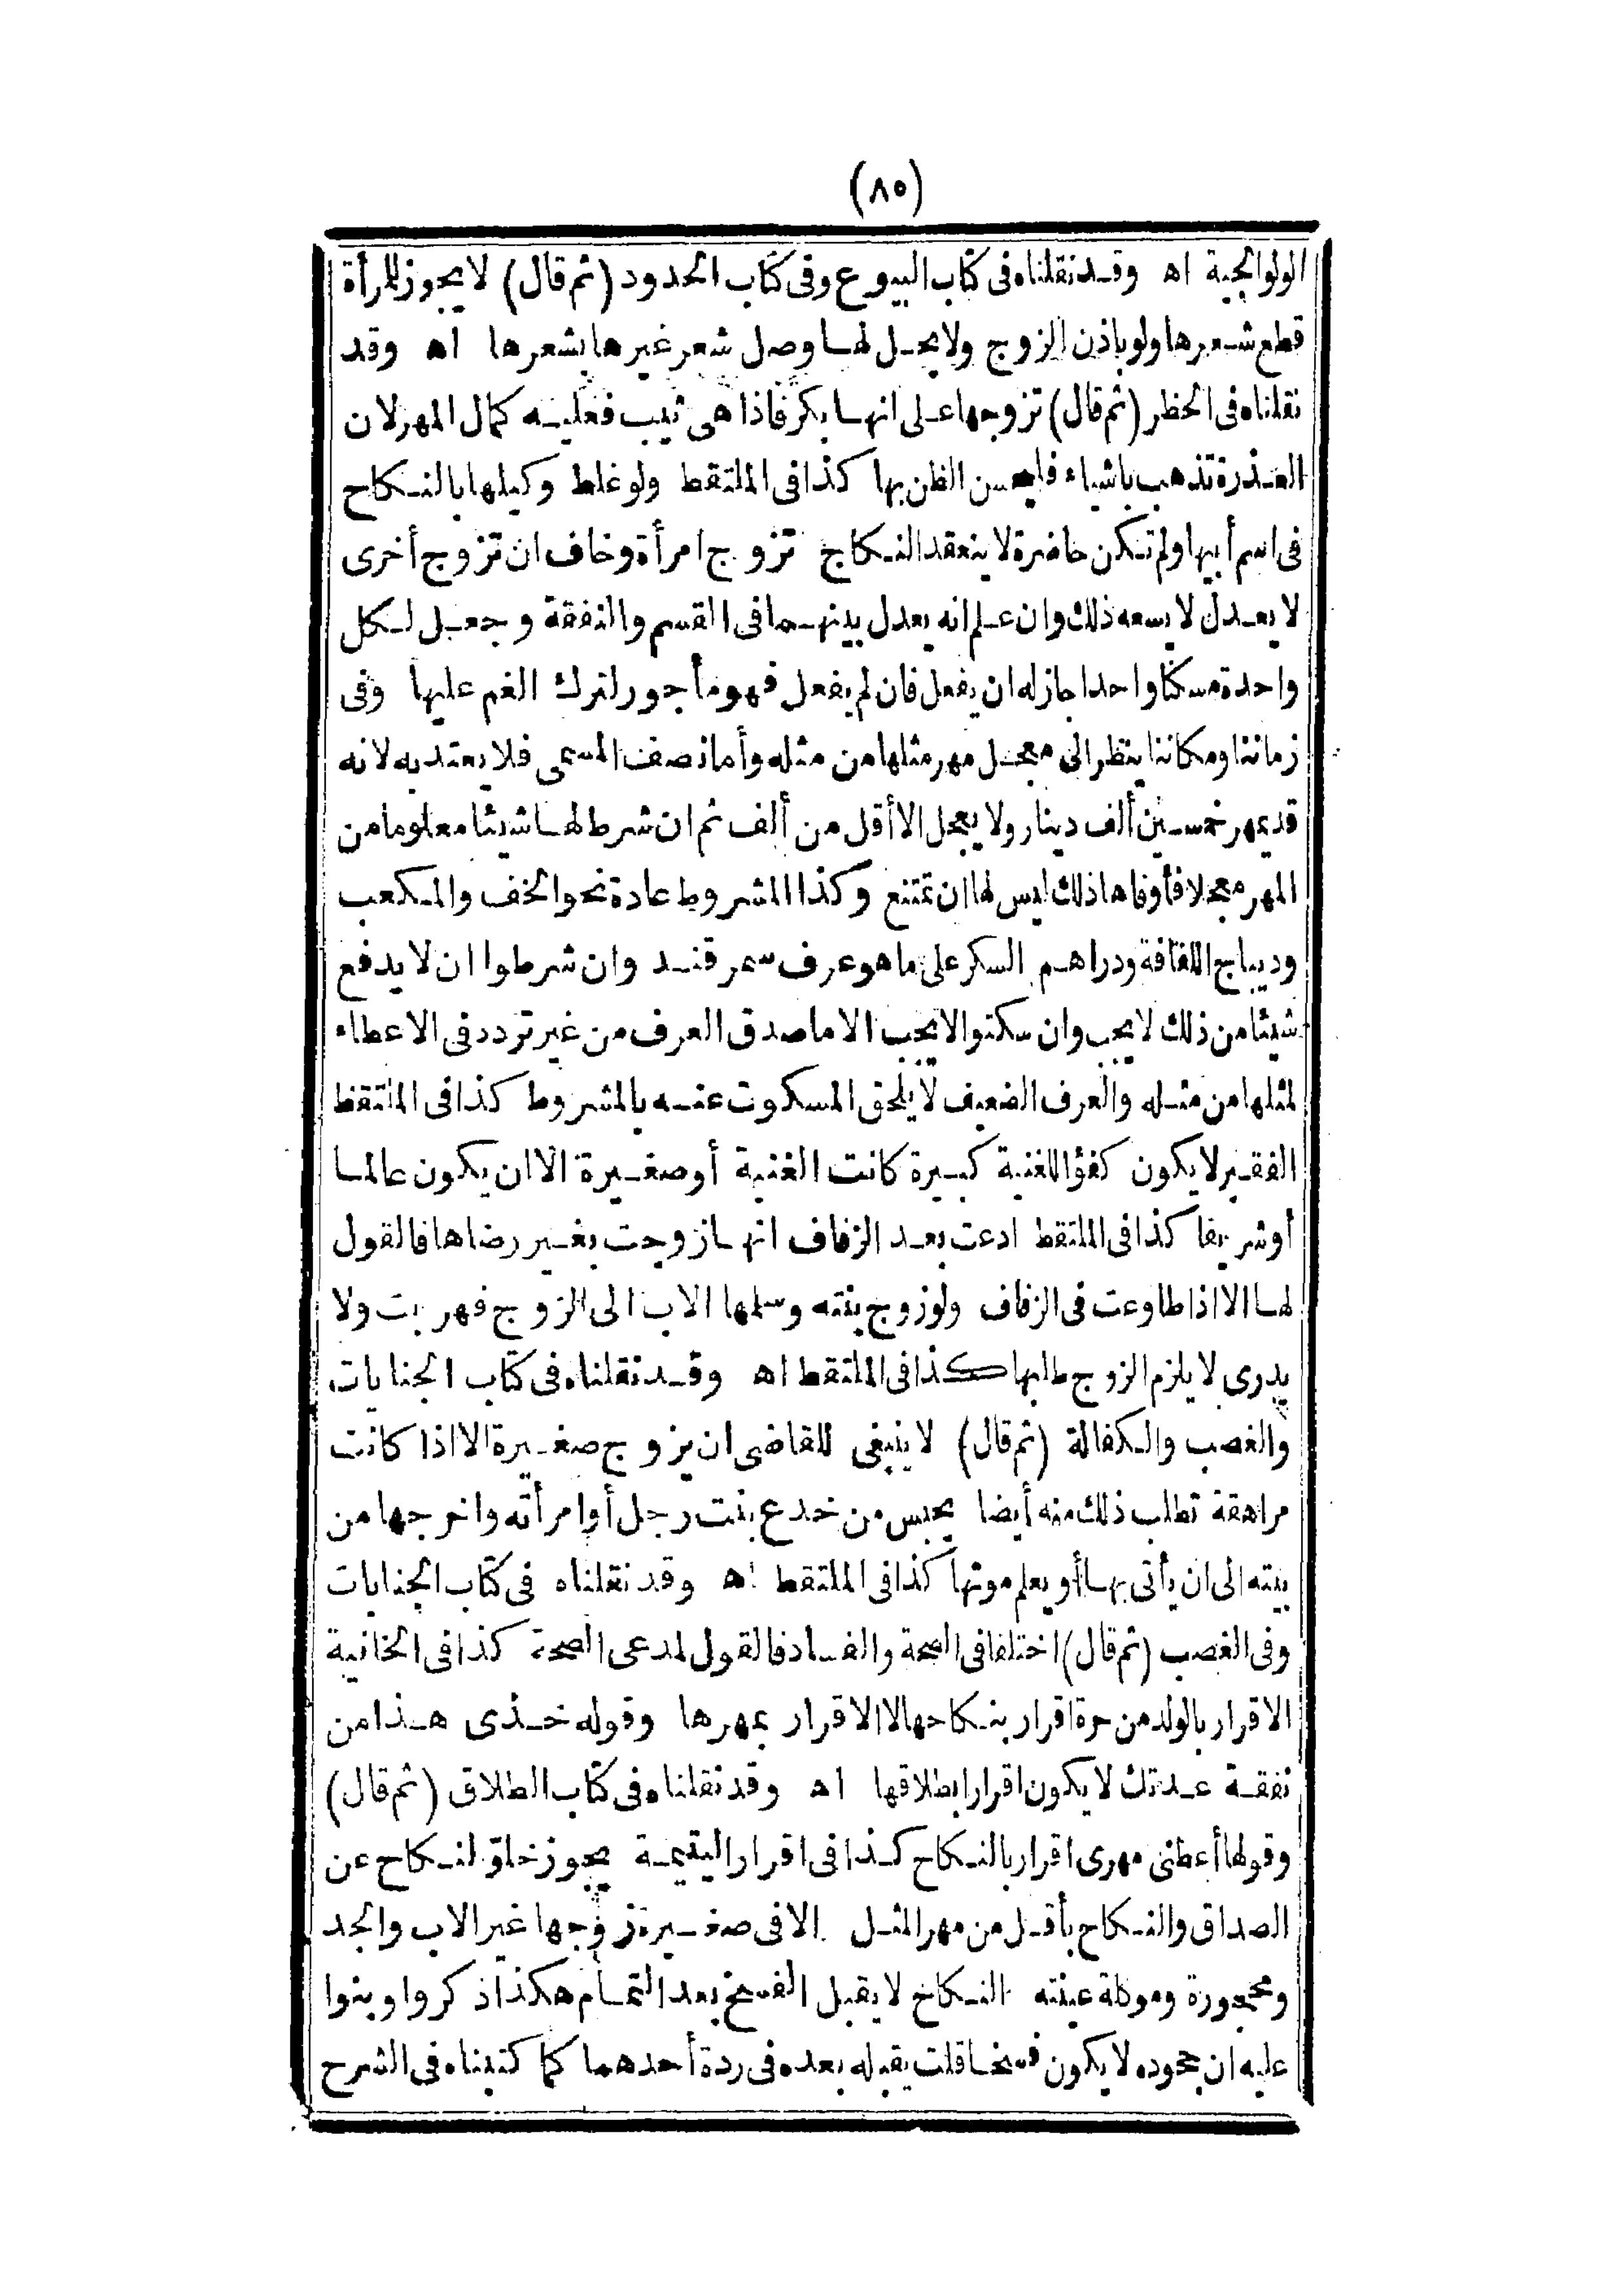 (٨٥)
الولوالجية اه وقد نقلناه فى كتاب البيوع وفى كتاب الحدود (ثم قال) لا يجوز للمرأة
قطع شعرها ولو باذن الزوج ولا يحل لها وصل شعر غيرها بشعرها اه وقد
نقلناه فى الحظر (ثم قال) تزوجها على انها بكر فاذا هى ثيب فعليه كمال المهر لان
العذرة تذهب باشياء فليحسن الظن بها كذا فى الملتقط ولو غلط وكيلها بالنكاح
فى اسم أبيها ولم تكن حاضرة لا ينعقد النكاح تزوج امرأة وخاف ان تزوج أخرى
لا يعدل لا يسعه ذلك وان علم انه يعدل بينهما فى القسم والنفقة وجعل لكل
واحدة مسكنا واحدا جاز له ان يفعل فان لم يفعل فهو مأجور لترك الغم عليها وفى
زماننا ومكاننا ينظر الى معجل مهر مثلها من مثله وأما نصف المسمى فلا يعتد به لانه
قد يمهر خمسين ألف دينار ولا يعجل الا أقل من ألف ثم ان شرط لها شيئا معلوما من
المهر معجلا فأوفاها ذلك ليس لها ان تمتنع وكذا المشروط عادة نحو الخف والمكعب
وديباج اللفافة ودراهم السكر على ما هو عرف سمرقند وان شرطوا ان لا يدفع
شيئا من ذلك لا يجب وان سكتوا لا يجب الا ما صدق العرف من غير تردد فى الاعطاء
لمثلها من مثله والعرف الضعيف لا يلحق المسكوت عنه بالمشروط كذا فى الملتقط
الفقير لا يكون كفؤا للغنية كبيرة كانت الغنية أو صغيرة الا ان يكون عالما
أو شريفا كذا فى الملتقط ادعت بعد الزفاف انها زوجت بغير رضاها فالقول
لها الا اذا طاوعت فى الزفاف ولو زوج بنته وسلمها الاب الى الزوج فهربت ولا
يدرى لا يلزم الزوج طلبها كذا فى الملتقط اه وقد نقلناه فى كتاب الجنايات
والغصب والكفالة (ثم قال) لا ينبغى للقاضى ان يزوج صغيرة الا اذا كانت
مراهقة تطلب ذلك منه أيضا يحبس من خدع بنت رجل أو امرأته واخرجها من
بيته الى ان يأتى بها أو يعلم موتها كذا فى الملتقط اه وقد نقلناه فى كتاب الجنايات
وفى الغصب (ثم قال) اختلفا فى الصحة والفساد فالقول لمدعى الصحة كذا فى الخانية
الاقرار بالولد من حرة اقرار بنكاحها لا الاقرار بمهرها وقوله خذى هذا من
نفقة عدتك لا يكون اقرارا بطلاقها اه وقد نقلناه فى كتاب الطلاق (ثم قال)
وقولها أعطنى مهرى اقرار بالنكاح كذا فى اقرار اليتيمة يجوز خلو النكاح عن
الصداق والنكاح بأقل من مهر المثل الا فى صغيرة زوجها غير الاب والجد
ومحجورة وموكلة عينته النكاح لا يقبل الفسخ بعد التمام هكذا ذكروا وبنوا
عليه ان جحوده لا يكون فسخا قلت يقبله بعده فى ردة أحدهما كما كتبناه فى الشرح